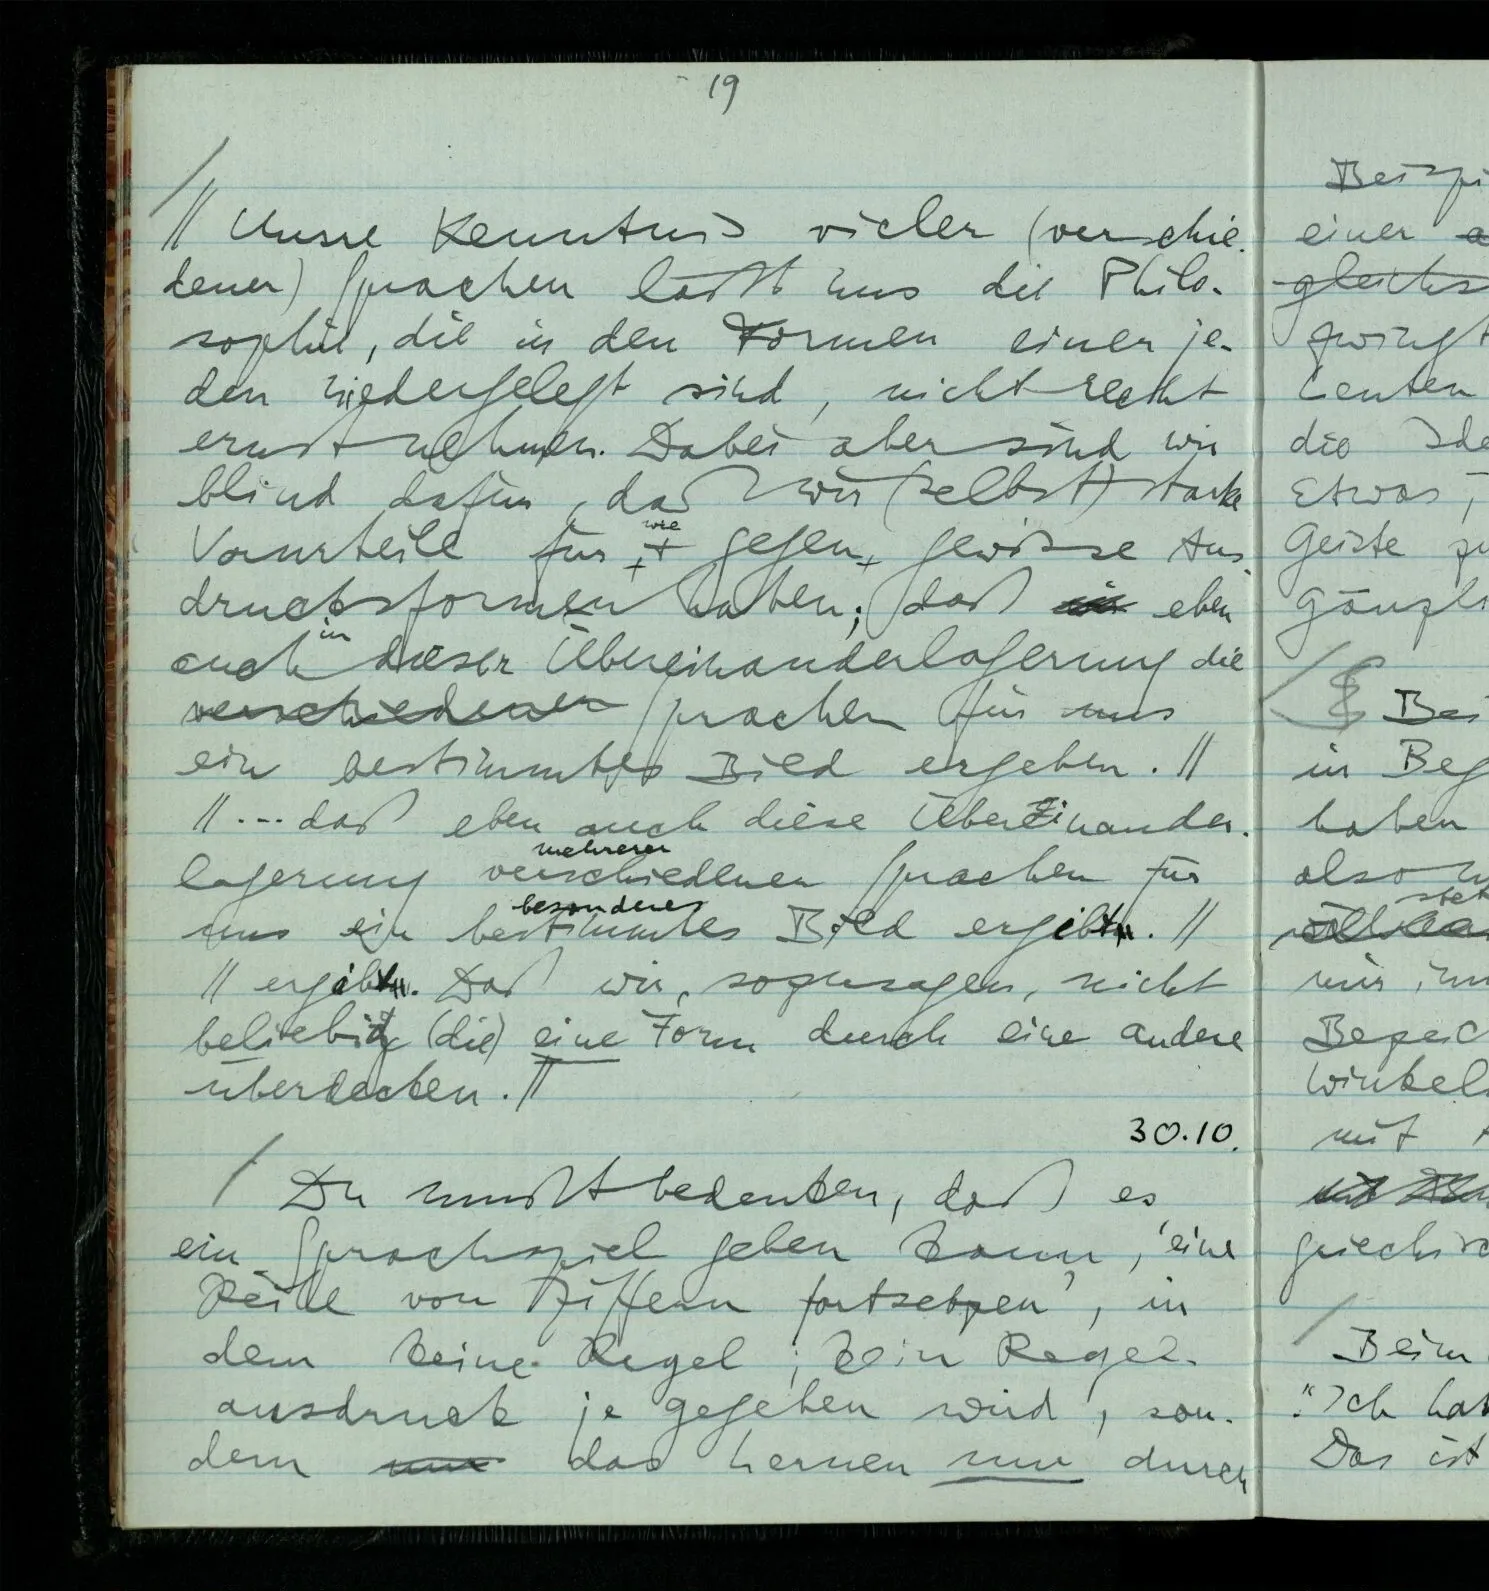 19
// Unsre Kenntnis vieler (verschie-
dener) Sprachen läßt uns die Philo-
sophie, die in den Formen einer je-
den niedergelegt sind, nicht recht
ernst nehmen. Dabei aber sind wir
blind dafür, daß wir (selbst) starke
wie
Vorurteile für, + gegen, gewisse Aus-
drucksformen haben; daß eben
in
auch dieser Übereinanderlagerung die
verschiedenen Sprachen für uns
ein bestimmtes Bild ergeben. //
// ... daß eben auch diese Übereinander-
mehrerer
lagerung verschiedenen Sprachen für
besonderes
uns ein bestimmtes Bild ergibt. //
// ergibt. Daß wir, sozusagen, nicht
beliebig (die) eine Form durch eine andere
überdecken. //
30.10.
/ Du mußt bedenken, daß es
ein Sprachspiel geben kann, 'eine
Reihe von Ziffern fortsetzen', in
dem keine Regel, kein Regel-
ausdruck je gegeben wird, son-
dern nur das Lernen nur durch
Beispi
einer
gleichs
zwingt
Leuten
die Ide
Etwas,
Geiste zu
gänzli
Bei
in Beg
haben
also
mir im
Bezeic
Winkel
mit
griechisc
Beim
"Ich hab
Das ist